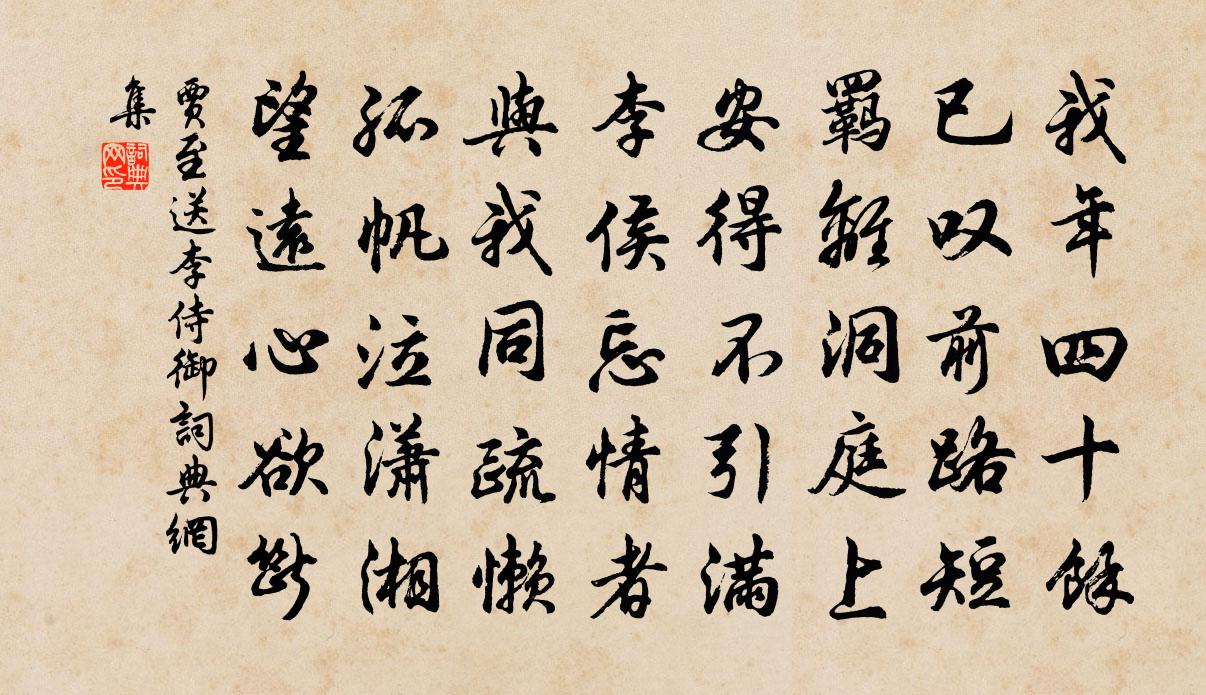 我年四十餘
已叹前路短
羁離洞庭上
安得不引满
李侯忘情者
與我同疏懒
孤帆泣潇湘
望遠心欲斷
賈至送李侍御詞典網
集
詞典网印